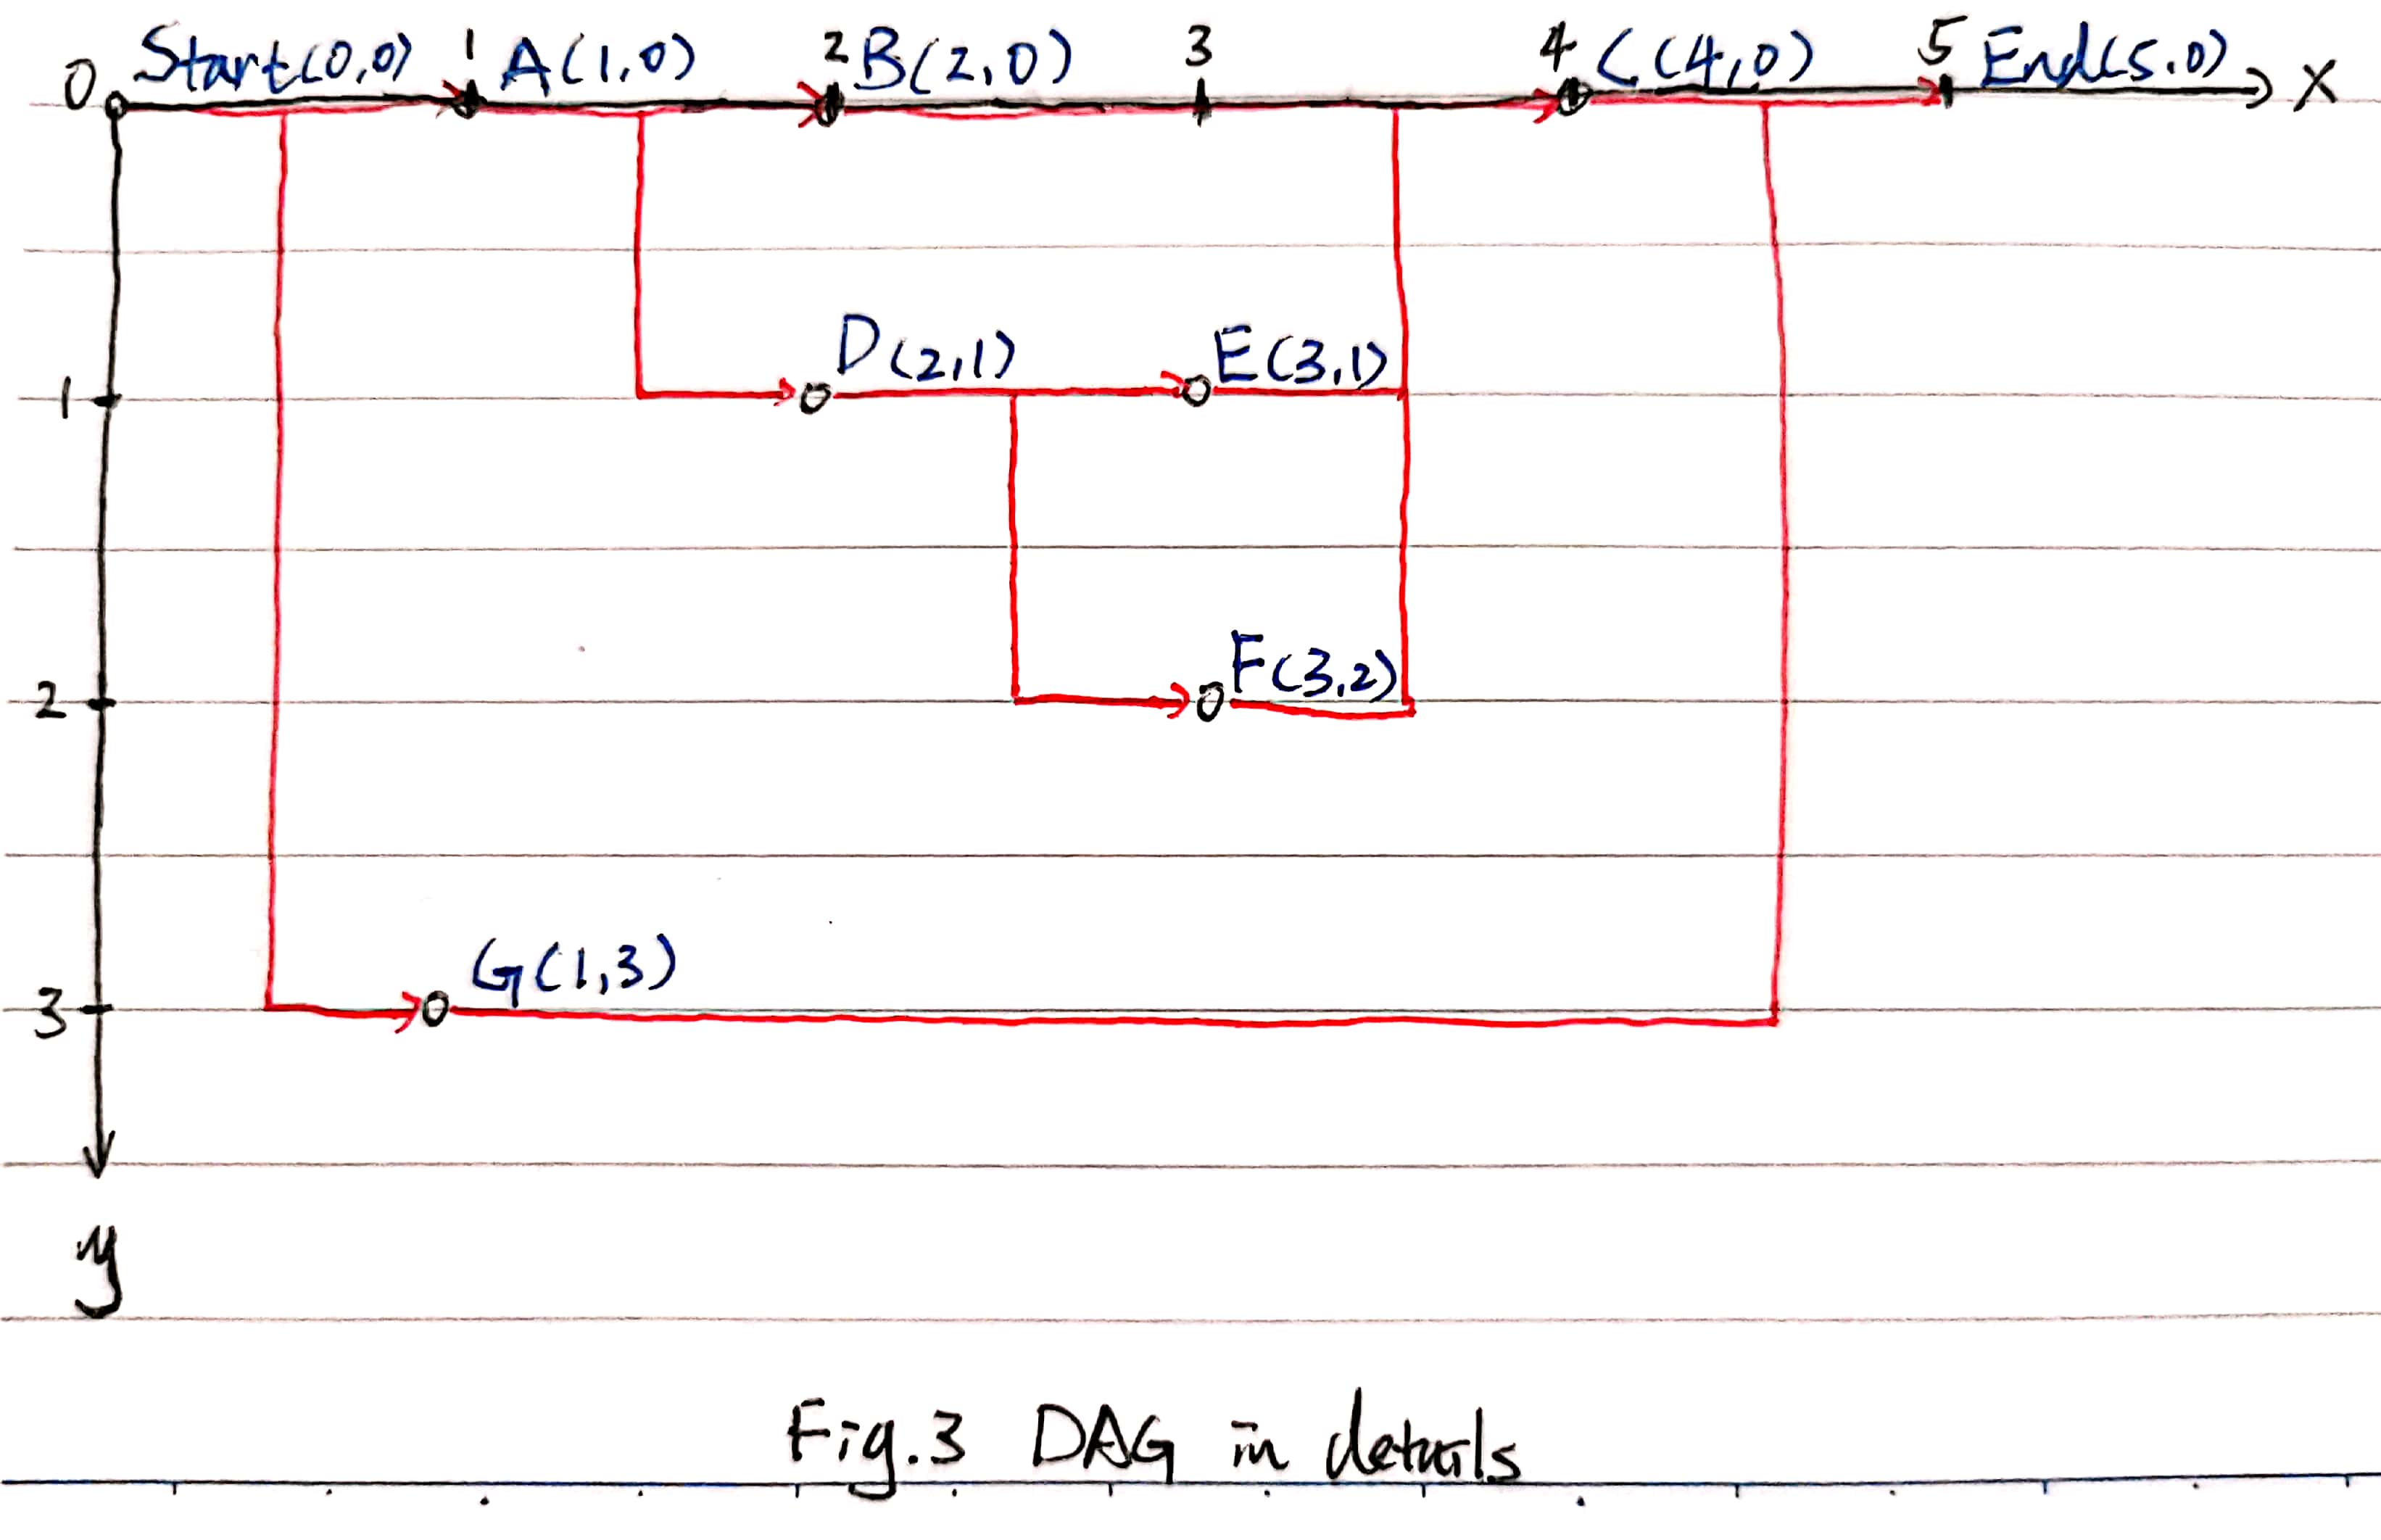 0 Start(0,0) 1 A(1,0) 2 B(2,0) 3 4 C(4,0) 5 End(5.0) X
1 D(2,1) E(3,1)
2 F(3,2)
3 G(1,3)
y
Fig.3 DAG in details